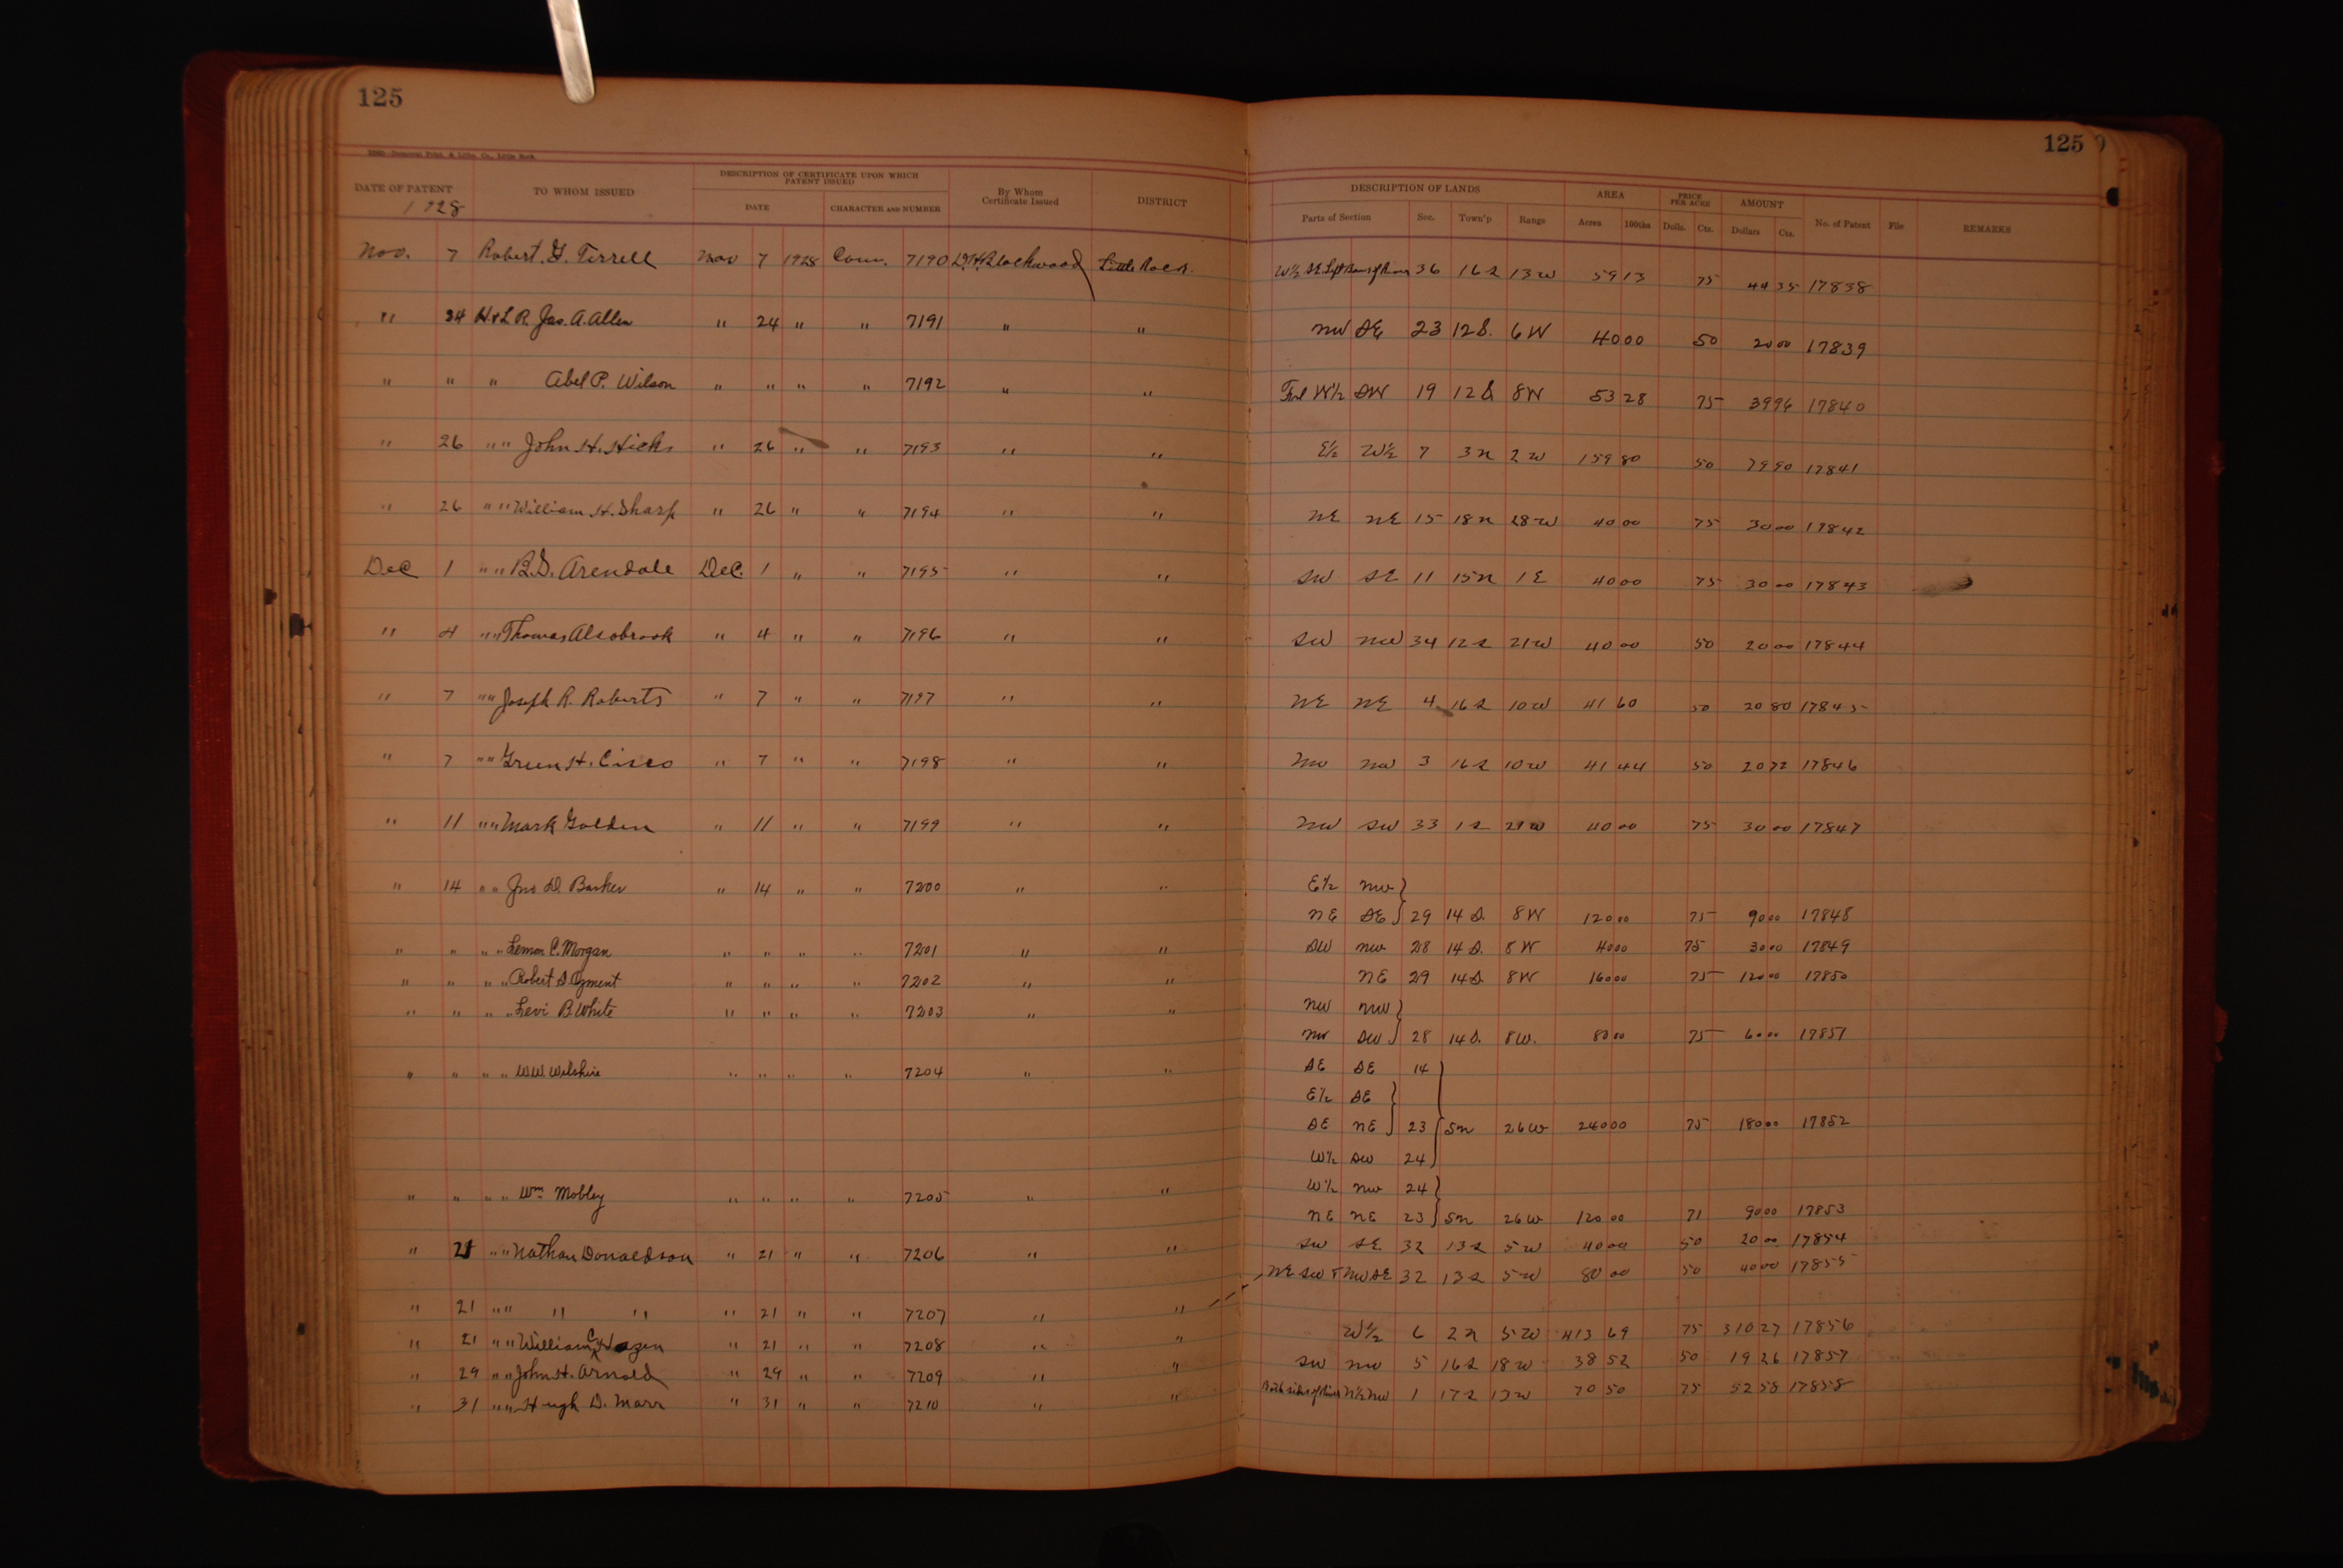 125
125
DATE OF PATENT TO WHOM ISSUED DESCRIPTION OF CERTIFICATE UPON WHICH PATENT ISSUED By Whom Certificate Issued DISTRICT DESCRIPTION OF LANDS AREA PRICE PER ACRE AMOUNT No. of Patent File REMARKS
1928 DATE CHARACTER AND NUMBER Parts of Section Sec. Town'p Range Acres 100ths Dolls. Cts. Dollars Cts.
Nov. 7 Robert. G. Terrell Nov 7 1928 Com. 7190 Blackwood Little Rock W½ SE 36 16 S 13 W 59 13 75 44 35 17838
" 24 H & L R Jas. A. Allen " 24 " " 7191 " " NW SE 23 12 S. 6 W 40 00 50 20 00 17839
" " " Abel P. Wilson " " " " 7192 " " Frl W½ SW 19 12 S 8 W 53 28 75 39 96 17840
" 26 " " John H. Hicks " 26 " " 7193 " " E½ W½ 7 3 N 2 W 159 80 50 79 90 17841
" 26 " " William H. Sharp " 26 " " 7194 " " NE NE 15 18 N 28 W 40 00 75 30 00 17842
Dec 1 " " B.S. Arendale Dec. 1 " " 7195 " " SW SE 11 15 N 1 E 40 00 75 30 00 17843
" 4 " " Thomas Alsobrook " 4 " " 7196 " " SW NW 34 12 S 21 W 40 00 50 20 00 17844
" 7 " " Joseph R. Roberts " 7 " " 7197 " " NE NE 4 16 S 10 W 41 60 50 20 80 17845
" 7 " " Green H. Cisco " 7 " " 7198 " " NW NW 3 16 S 10 W 41 44 50 20 72 17846
" 11 " " Mark Golden " 11 " " 7199 " " NW SW 33 1 S 21 W 40 00 75 30 00 17847
" 14 " " Jno D. Barker " 14 " " 7200 " " E½ NW
NE SE 29 14 S. 8 W 120 00 75 90 00 17848
" " " " Lemon C. Morgan " " " " 7201 " " SW NW 28 14 S. 8 W 40 00 75 30 00 17849
" " " " Robert S. Ozment " " " " 7202 " " NE 29 14 S. 8 W 160 00 75 120 00 17850
" " " " Levi B. White " " " " 7203 " " NW NW
NW SW 28 14 S. 8 W. 80 00 75 60 00 17851
" " " " W.W. Wilshire " " " " 7204 " " SE SE 14
E½ SE
SE NE 23 5 N 26 W 240 00 75 180 00 17852
W½ SW 24
" " " " Wm Mobley " " " " 7205 " " W½ NW 24
NE NE 23 5 N 26 W 120 00 71 90 00 17853
" 21 " " Nathan Donaldson " 21 " " 7206 " " SW SE 32 13 S 5 W 40 00 50 20 00 17854
" 21 " " " " " 21 " " 7207 " " NE SW & NW SE 32 13 S 5 W 80 00 50 40 00 17855
" 21 " " William C. Hazen " 21 " " 7208 " " W½ 6 2 N 5 W 413 69 75 310 27 17856
" 29 " " John H. Arnold " 29 " " 7209 " " SW NW 5 16 S 18 W 38 52 50 19 26 17857
" 31 " " Hugh D. Marr " 31 " " 7210 " " Both sides of River N½ NW 1 17 S 13 W 70 50 75 52 58 17858